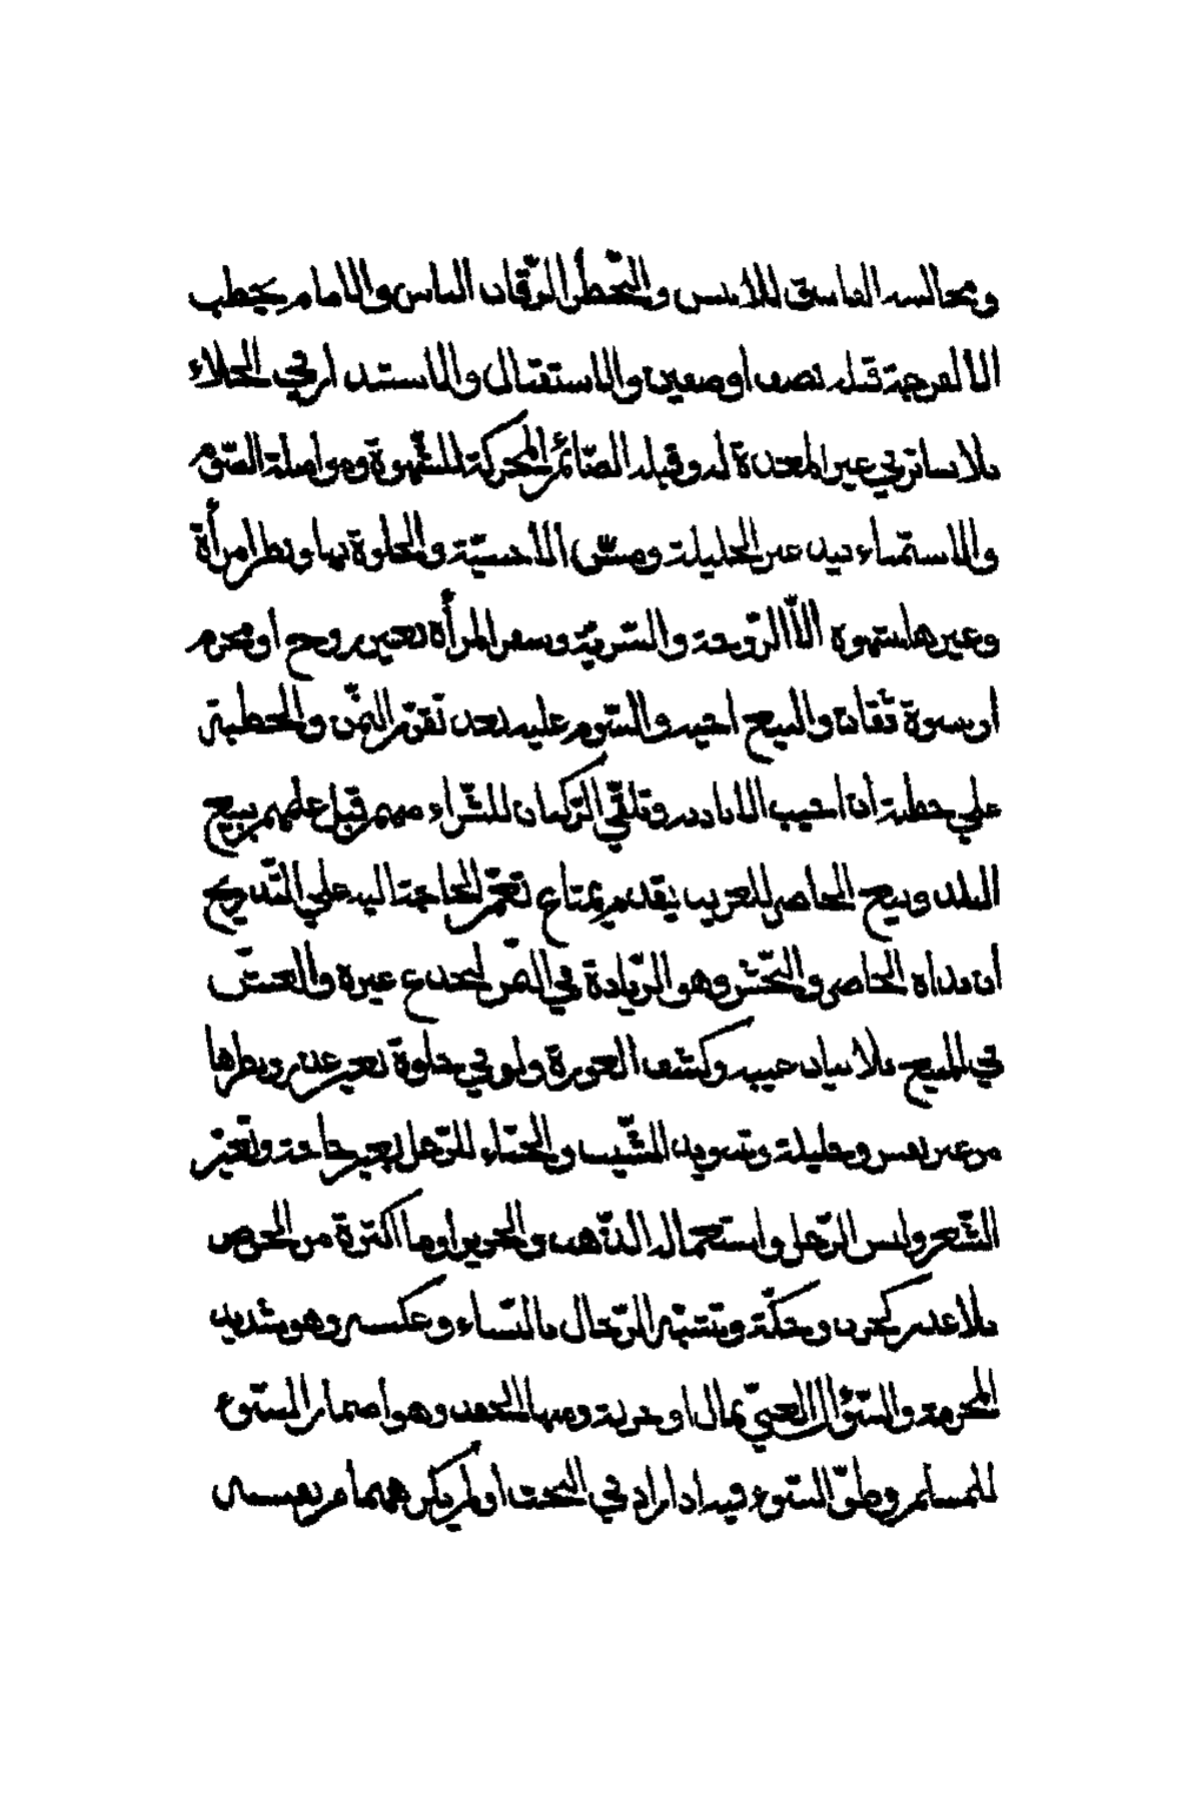 ومجالسة الفاسق للأنس والتّخطّي لرّقاب الناس والامام يخطب
الا لفرجة قبله نصف اوصفين والاستقبال والاستدبار في الخلاء
بلا ساتر في غير المعتدة له وقبلة الصّائم المحركة للشّهوة ومواصلة الصّوم
والاستمناء بيد غير الحليلة ومسّ الاجنبيّة والخلوة بها ونظر امرأة
وغيرها بشهوة الّا الزّوجة والسّريّة وسفر المرأة بغير زوج او محرم
او نسوة ثقات والبيع اخيه والسّوم عليه بعد تقرّر الثّمن والخطبة
علي خطبة أخ اجيب الا باذنه وتلقّي الرّكبان للشّراء منهم قبل علمهم ببيع
البلد وبيع الحاضر للغريب يقدم بمتاع تعمّ الحاجة اليه علي التّدريج
أن بدأه الحاضر والنّجش وهو الزّيادة في الثّمن ليخدع غيره والغشّ
في المبيع بلا بيان عيبه وكشف العورة ولو في خلوة بغير عذر ونظرها
من غير نفس وحليلة وتسويد الشّيب والحنّاء للرّجل بغير حاجة وتغيّر
الشّعر ولبس الرّجل واستعماله الذّهب والحرير او ما اكثره من الحرير
بلا عذر كجرب وحكّة وتشبّه الرّجال بالنّساء وعكسه وهو شديد
الحرمة والسّؤال لغنيّ بمال او حرفة ومنها الحقد وهو اضمار السّوء
للمسلم وظنّ السّوء فيه اذا زاد في البحث او لم يكرههما من نفسه